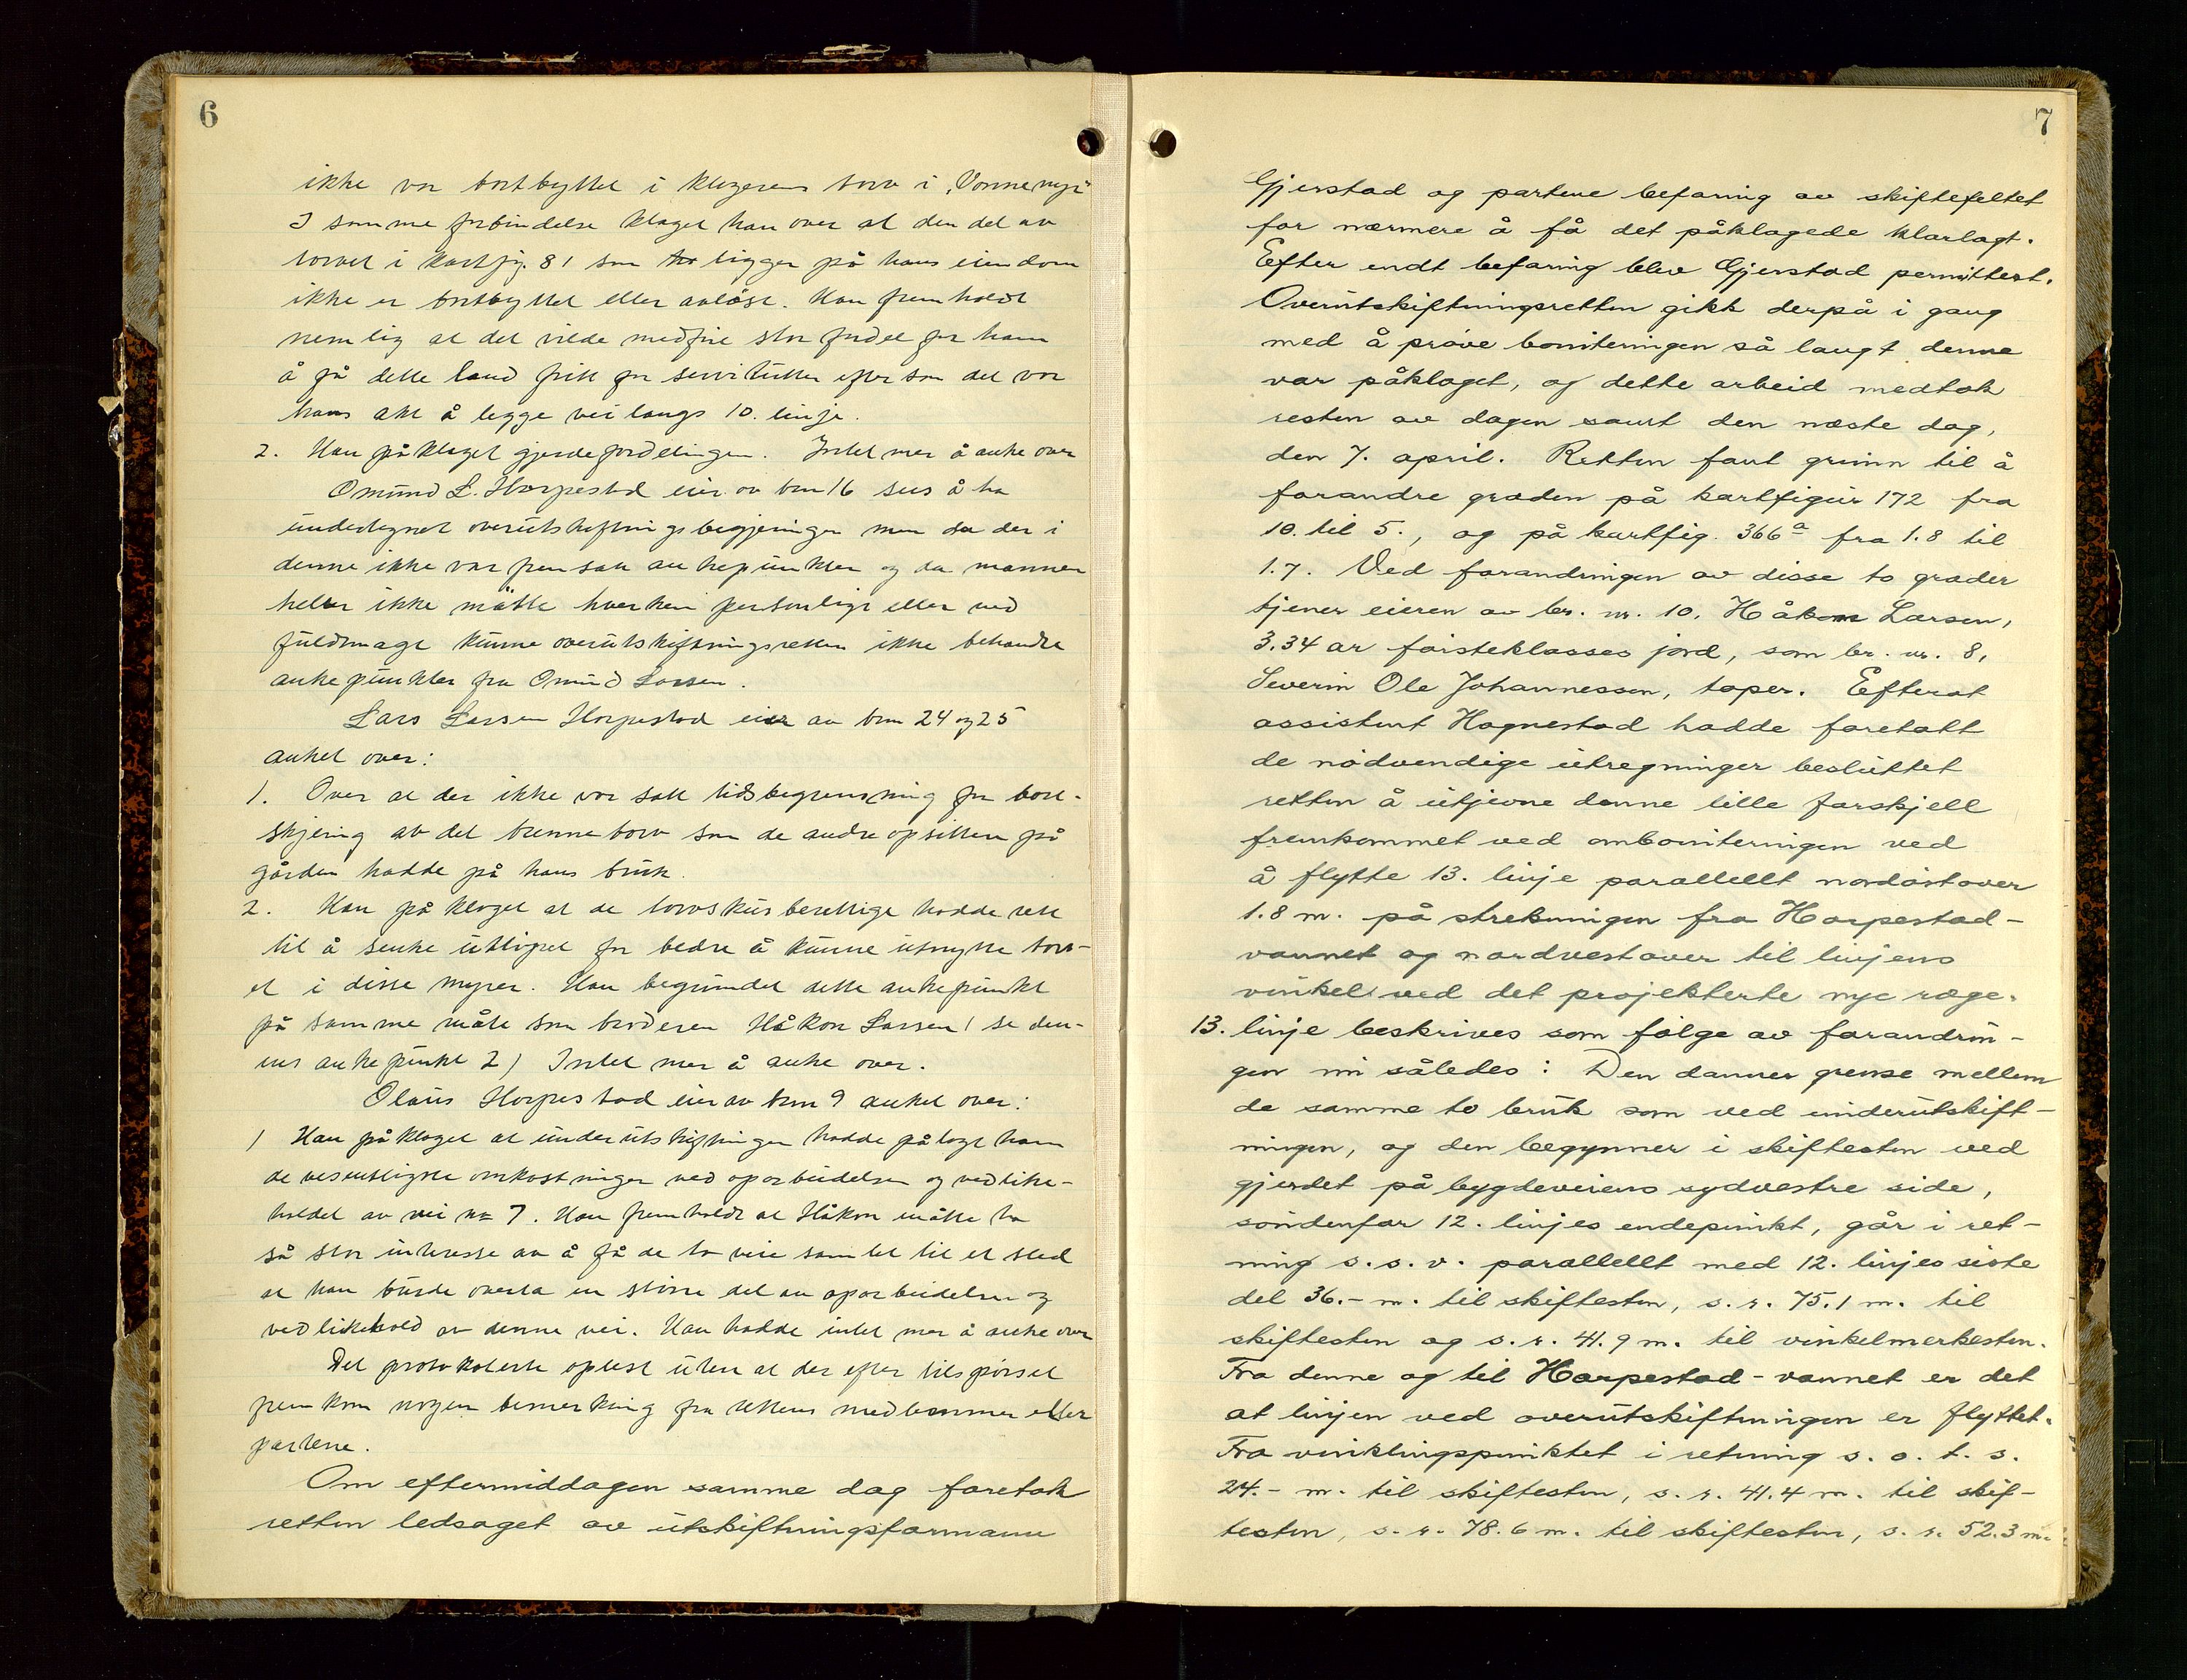 6
ikke var bortbyttet i klagerens torv i „Vonnemyr"
I samme forbindelse klaget han over at den del av
torvet i kartfig. 81 som ligger på hans eiendom
ikke er bortbyttet eller avløst. Han fremholdt
nemlig at det vilde medføre stor fordel for ham
å få dette land fritt for servitutter eftersom det var
hans akt å legge vei langs 10. linje.
2. Han påklaget gjerdefordelingen. Intet mer å anke over
Omund L. Harpestad eier av brn 16 sees å ha
undertegnet overutskiftningsbegjeringen men da der i
denne ikke var fremsatt ankepunkter og da mannen
heller ikke møtte hverken personlige eller ved
fuldmagt kunne overutskiftningsretten ikke behandle
ankepunkter fra Omund Larsen.
Lars Larsen Harpestad eier av brn 24 og 25
anket over:
1. Over at der ikke var satt tidsbegrensning for bort-
skjering av det brennetorv som de andre opsittere på
gården hadde på hans bruk.
2. Han påklaget at de torvskursberettige hadde rett
til å senke utløpet for bedre å kunne utnytte torv-
et i disse myrer. Han begrundet dette ankepunkt
på samme måte som broderen Håkon Larsen (se den-
nes ankepunkt 2) Intet mer å anke over.
Olaus Harpestad eier av brn 9 anket over:
1 Han påklaget at underutskiftningen hadde pålagt ham
de vesentligste omkostninger ved oparbeidelsen og vedlike-
holdet av vei no 7. Han fremholdt at Håkon måtte ha
så stor interesse av å få de to veie samlet til et sted
at han burde overta en større del av oparbeidelsen og
vedlikehold av denne vei. Han hadde intet mer å anke over
Det protokolerte oplest uten at der efter tilspørsel
fremkom nogen bemerkning fra rettens medlemmer eller
partene.
Om eftermiddagen samme dag foretok
retten ledsaget av utskiftningsformann
7
Gjerstad og partene befaring av skiftefeltet
for nærmere å få det påklagede klarlagt.
Efter endt befaring blev Gjerstad permittert.
Overutskiftningsretten gikk derpå i gang
med å prøve boniteringen så langt denne
var påklaget, og dette arbeid medtok
resten av dagen samt den næste dag,
den 7. april. Retten fant grunn til å
forandre graden på kartfigur 172 fra
10. til 5., og på kartfig. 366a fra 1.8 til
1.7. Ved forandringen av disse to grader
tjener eieren av br. nr. 10. Håkon Larsen,
3.34 ar førsteklasses jord, som br. nr. 8,
Severin Ole Johannessen, taper. Efterat
assistent Hognestad hadde foretatt
de nødvendige utregninger besluttet
retten å utjevne denne lille forskjell
fremkommet ved omboniteringen ved
å flytte 13. linje parallellt nordøstover
1.8 m. på strekningen fra Harpestad-
vannet og nordvestover til linjens
vinkel ved det projekterte nye ræge.
13. linje beskrives som følge av forandrin-
gen nu således: Den danner grense mellem
de samme to bruk som ved underutskift-
ningen, og den begynner i skiftesten ved
gjerdet på bygdeveiens sydvestre side,
søndenfor 12. linjes endepunkt, går i ret-
ning s. s. v. parallellt med 12. linjes siste
del 36.- m. til skiftesten, s. r. 75.1 m. til
skiftesten og s. r. 41.9 m. til vinkelmerkesten.
Fra denne og til Harpestad-vannet er det
at linjen ved overutskiftningen er flyttet.
Fra vinklingspunktet i retning s. o. t. s.
24.- m. til skiftesten, s. r. 41.4 m. til skif-
testen, s. r. 78.6 m. til skiftesten, s. r. 52.3 m.